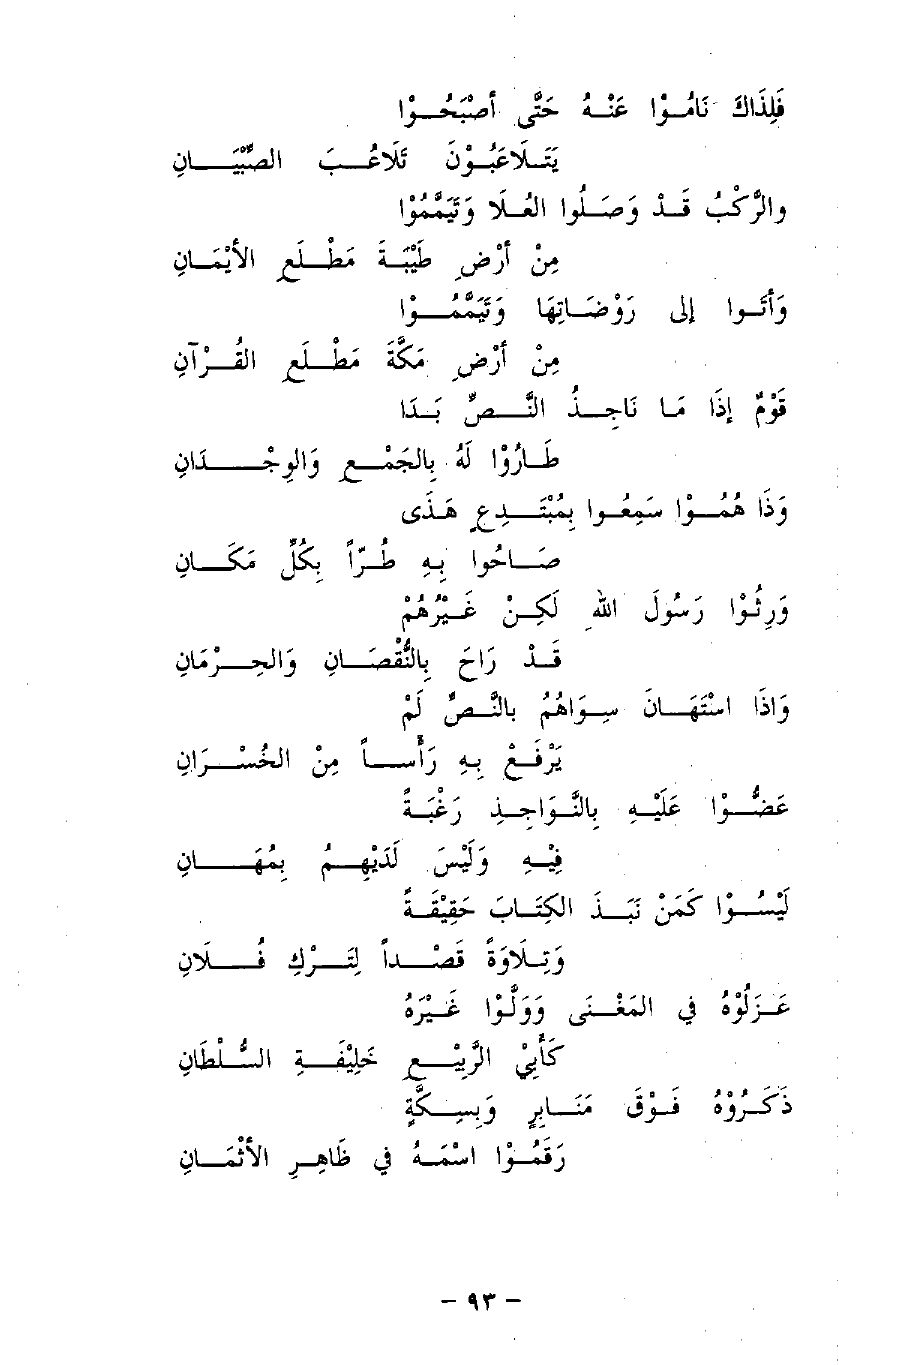 فَلِذَاكَ نَامُوْا عَنْهُ حَتَّى أَصْبَحُوْا
يَتَلَاعَبُوْنَ تَلَاعُبَ الصِّبْيَانِ
والرَّكْبُ قَدْ وَصَلُوا العُلَا وَتَيَمَّمُوْا
مِنْ أَرْضِ طَيْبَةَ مَطْلَعِ الأَيْمَانِ
وَأَتَوا إلى رَوْضَاتِهَا وَتَيَمَّمُوْا
مِنْ أَرْضِ مَكَّةَ مَطْلَعِ القُرْآنِ
قَوْمٌ إذَا مَا نَاجِذُ النَّصِّ بَدَا
طَارُوْا لَهُ بِالجَمْعِ وَالوِجْدَانِ
وَذَا هُمُوْا سَمِعُوا بِمُبْتَدِعٍ هَذَى
صَاحُوا بِهِ طُرّاً بِكُلِّ مَكَانِ
وَرِثُوْا رَسُولَ اللهِ لَكِنْ غَيْرُهُمْ
قَدْ رَاحَ بِالنُّقْصَانِ وَالحِرْمَانِ
وَاذَا اسْتَهَانَ سِوَاهُمُ بالنَّصِّ لَمْ
يَرْفَعْ بِهِ رَأْساً مِنْ الخُسْرَانِ
عَضُّوْا عَلَيْهِ بِالنَّوَاجِذِ رَغْبَةً
فِيْهِ وَلَيْسَ لَدَيْهِمُ بِمُهَانِ
لَيْسُوْا كَمَنْ نَبَذَ الكِتَابَ حَقِيْقَةً
وَتِلَاوَةً قَصْداً لِتَرْكِ فُلَانِ
عَزَلُوْهُ في المَعْنَى وَوَلَّوْا غَيْرَهُ
كَأَبِيْ الرَّبِيْعِ خَلِيْفَةِ السُّلْطَانِ
ذَكَرُوْهُ فَوْقَ مَنَابِرٍ وَبِسِكَّةٍ
رَقَمُوْا اسْمَهُ في ظَاهِرِ الأَثْمَانِ
- ٩٣ -